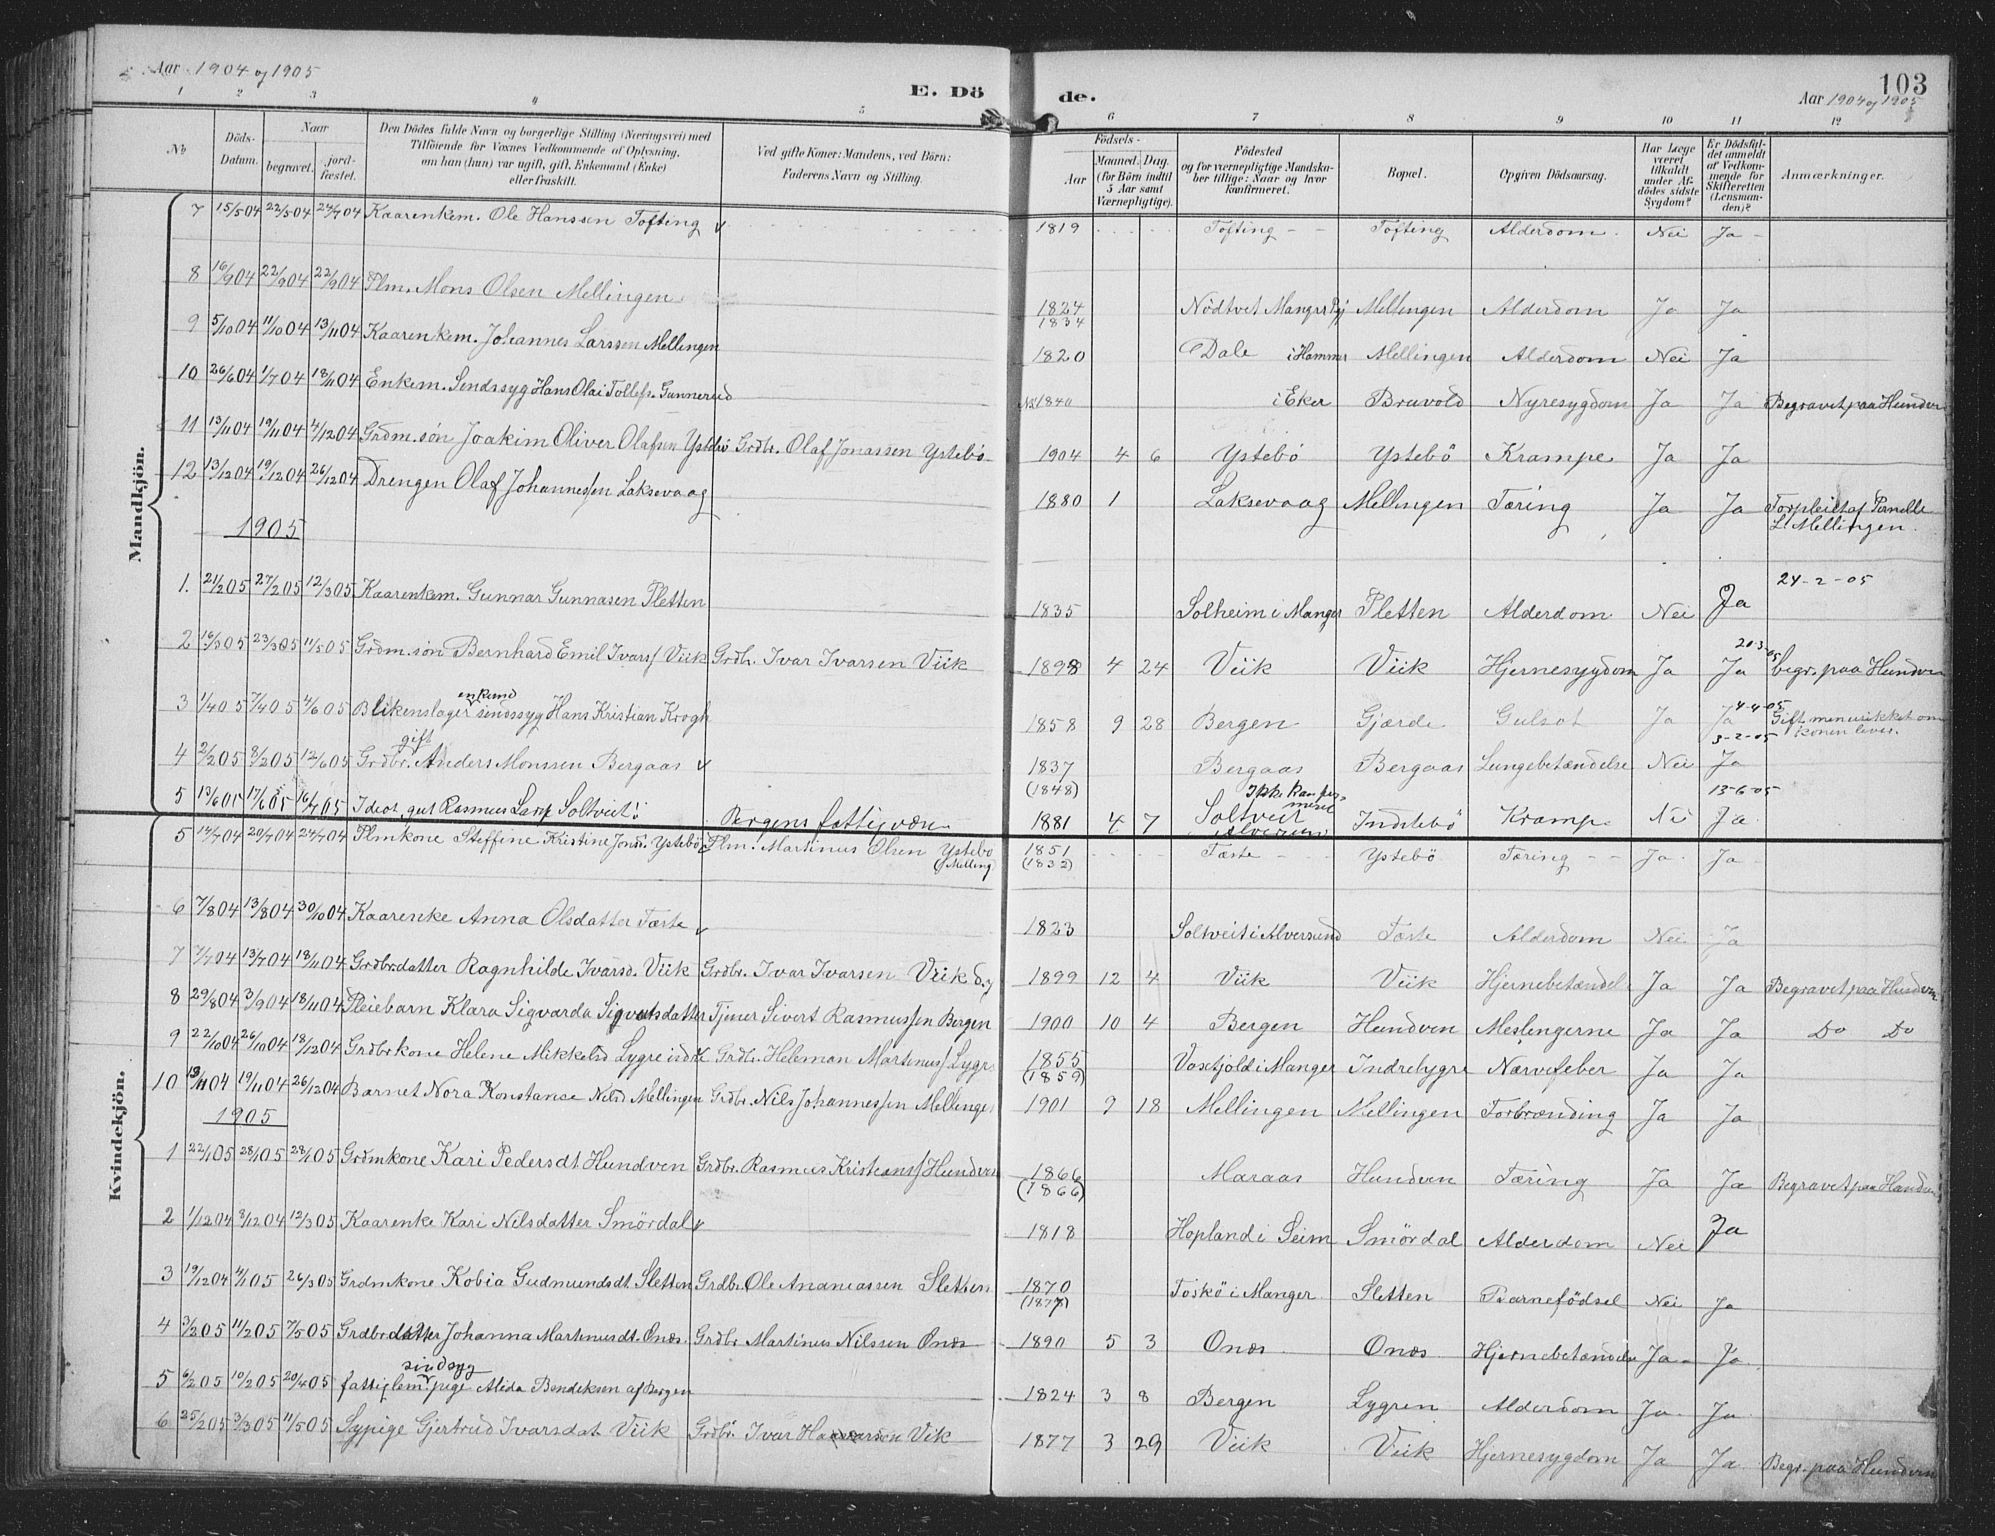 Aar 1904 og 1905
E. Dö de.
103
Aar 1904 og 1905
1 2 3 4 5 6 7 8 9 10 11 12
No
Döds-Datum.
Naar
begravet.
jordfæstet.
Den Dödes fulde Navn og borgerlige Stilling (Næringsvei) med
Tilföiende for Voxnes Vedkommende af Oplysning,
om han (hun) var ugift, gift, Enkemand (Enke)
eller fraskilt.
Ved gifte Koner: Mandens, ved Börn:
Faderens Navn og Stilling.
Födsels-
Aar
Maaned. Dag.
(for Börn indtil
5 Aar samt
Værnepligtige).
Födested
og for værnepligtige Mandskaber tillige: Naar og hvor
konfirmeret.
Bopæl.
Opgiven Dödsaarsag.
Har Læge
været
tilkaldt
under Afdödes sidste
Sygdom?
Er Dödsfaldet anmeldt
af Vedkommende for
Skifteretten
(Lensmanden)?
Anmærkninger.
Mandkjön.
7 15/5 04 22/5 04 24/7 04 Kaarenkem. Ole Hanssen Tofting 1819 Tofting Tofting Alderdom Nei Ja
8 16/9 04 22/9 04 22/9 04 Plm. Mons Olsen Mellingen 1824 1834 Nödtvet Manger Mellingen Alderdom Ja Ja
9 5/10 04 11/10 04 13/11 04 Kaarenkem. Johannes Larssen Mellingen 1820 Dale i Hammer Mellingen Alderdom Nei Ja
10 26/6 04 1/7 04 18/11 04 Enkem. Sindssyg Hans Olai Tollefs. Gunnerud 1840 i Eker Bruvold Nyresygdom Ja Ja Begravet paa Hundven
11 13/11 04 19/11 04 4/12 04 Grdm.sön Joakim Oliver Olafsen Ystebö Grdbr. Olaf Jonassen Ystebö 1904 4 6 Ystebö Ystebö Krampe Ja Ja
12 13/12 04 19/12 04 26/12 04 Drengen Olaf Johannessen Laksevaag 1880 1 Laksevaag Mellingen Tæring Ja Ja Forpleiet af Pernelle
L. Mellingen.
1905
1. 21/2 05 27/2 05 12/3 05 Kaarenkem. Gunnar Gunnasen Pletten 1835 Solheim i Manger Pletten Alderdom Nei Ja 24-2-05
2 16/3 05 23/3 05 11/5 05 Grdm.sön Bernhard Emil Ivars. Viik Grdb. Ivar Ivarsen Viik 1898 4 24 Viik Viik Hjernesygdom Ja 20-3-05 Ja begr. paa Hundven
3 1/4 05 7/4 05 4/6 05 Blikenslager enkem sindssyg Hans Kristian Krogh 1858 9 28 Bergen Gjærde Gulsot Ja 4-4-05 Ja Gift men usikket om
konen lever.
4 2/2 05 8/2 05 12/6 05 Grdbr. gift Anders Monssen Bergaas 1837 (1848) Bergaas Bergaas Lungebetændelse Nei 3-2-05 Ja
5 13/6 05 17/6 05 16/7 05 Idiot, gut Rasmus Lars. Soltveit Bergens fattigvæn 1881 4 7 Soltveit Alversund Ikke konfirmeret Indstebö Krampe Nei 13-6-05 Ja
Kvindekjön.
5 14/7 04 20/7 04 24/7 04 Plmkone Steffine Kristine Jonsd. Ystebö Plm. Martinus Olsen Ystebö (Melling) 1851 (1832) Tæste Ystebö Tæring Ja Ja
6 7/8 04 13/8 04 30/10 04 Kaarenke Anna Olsdatter Tæste 1823 Soltveit i Alversund Tæste Alderdom Nei Ja
7 7/7 04 13/7 04 18/11 04 Grdbr.datter Ragnhilde Ivarsd. Viik Grdbr. Ivar Ivarsen Viik 1899 12 4 Viik Viik Hjernebetændel. Ja Ja Begravet paa Hundven
8 29/8 04 3/9 04 18/11 04 Pleiebarn Klara Sigvarda Sigvatsdatter Tjener Sivert Rasmussen Bergen 1900 10 4 Bergen Hundven Meslingerne Ja Ja Do Do
9 22/10 04 26/10 04 18/12 04 Grdbrkone Helene Mikkelsd Lygre indre Grdbr. Heleman Martinus. Lygr 1855 (1859) Voxtjold i Manger Indrelygre Nærvefeber Ja Ja
10 13/11 04 19/11 04 26/12 04 Barnet Nora Konstanse Nilsd Mellingen Grdbr. Nils Johannessen Mellingen 1901 9 18 Mellingen Mellingen Forbrænding Ja Ja
1905
1 22/1 05 28/1 05 28/1 05 Grdmkone Kari Pedersdt Hundven Grdbr. Rasmus Kristians. Hundven 1866 (1866) Maraas Hundven Tæring Ja Ja Begravet paa Hundven
2 1/12 04 8/12 04 12/3 05 Kaarenke Kari Nilsdatter Smördal 1818 Hopland i Seim Smördal Alderdom Nei Ja
3 19/12 04 4/1 05 26/3 05 Grdmkone Kobia Gudmundsdt. Sletten Grdbr. Ole Ananiassen Sletten 1870 (1877) Toskö i Manger Sletten Barnefödsel Nei Ja
4 3/2 05 11/2 05 7/5 05 Grdbrdatter Johanna Martinusdt. Onæs Grdbr Martinus Nilssen Onæs 1890 5 3 Onæs Onæs Hjernebetændelse Ja Ja
5 6/2 05 10/2 05 20/4 05 fattiglem sindsyg pige Alida Bendiksen af Bergen 1824 3 8 Bergen Lygren Alderdom Ja Ja
6 25/2 05 3/3 05 11/5 05 Sypige Gjertrud Ivarsdat Viik Grdbr. Ivar Haavarsen Vik 1877 3 29 Viik Viik Hjernesygdom Ja Ja Begr. paa Hundven